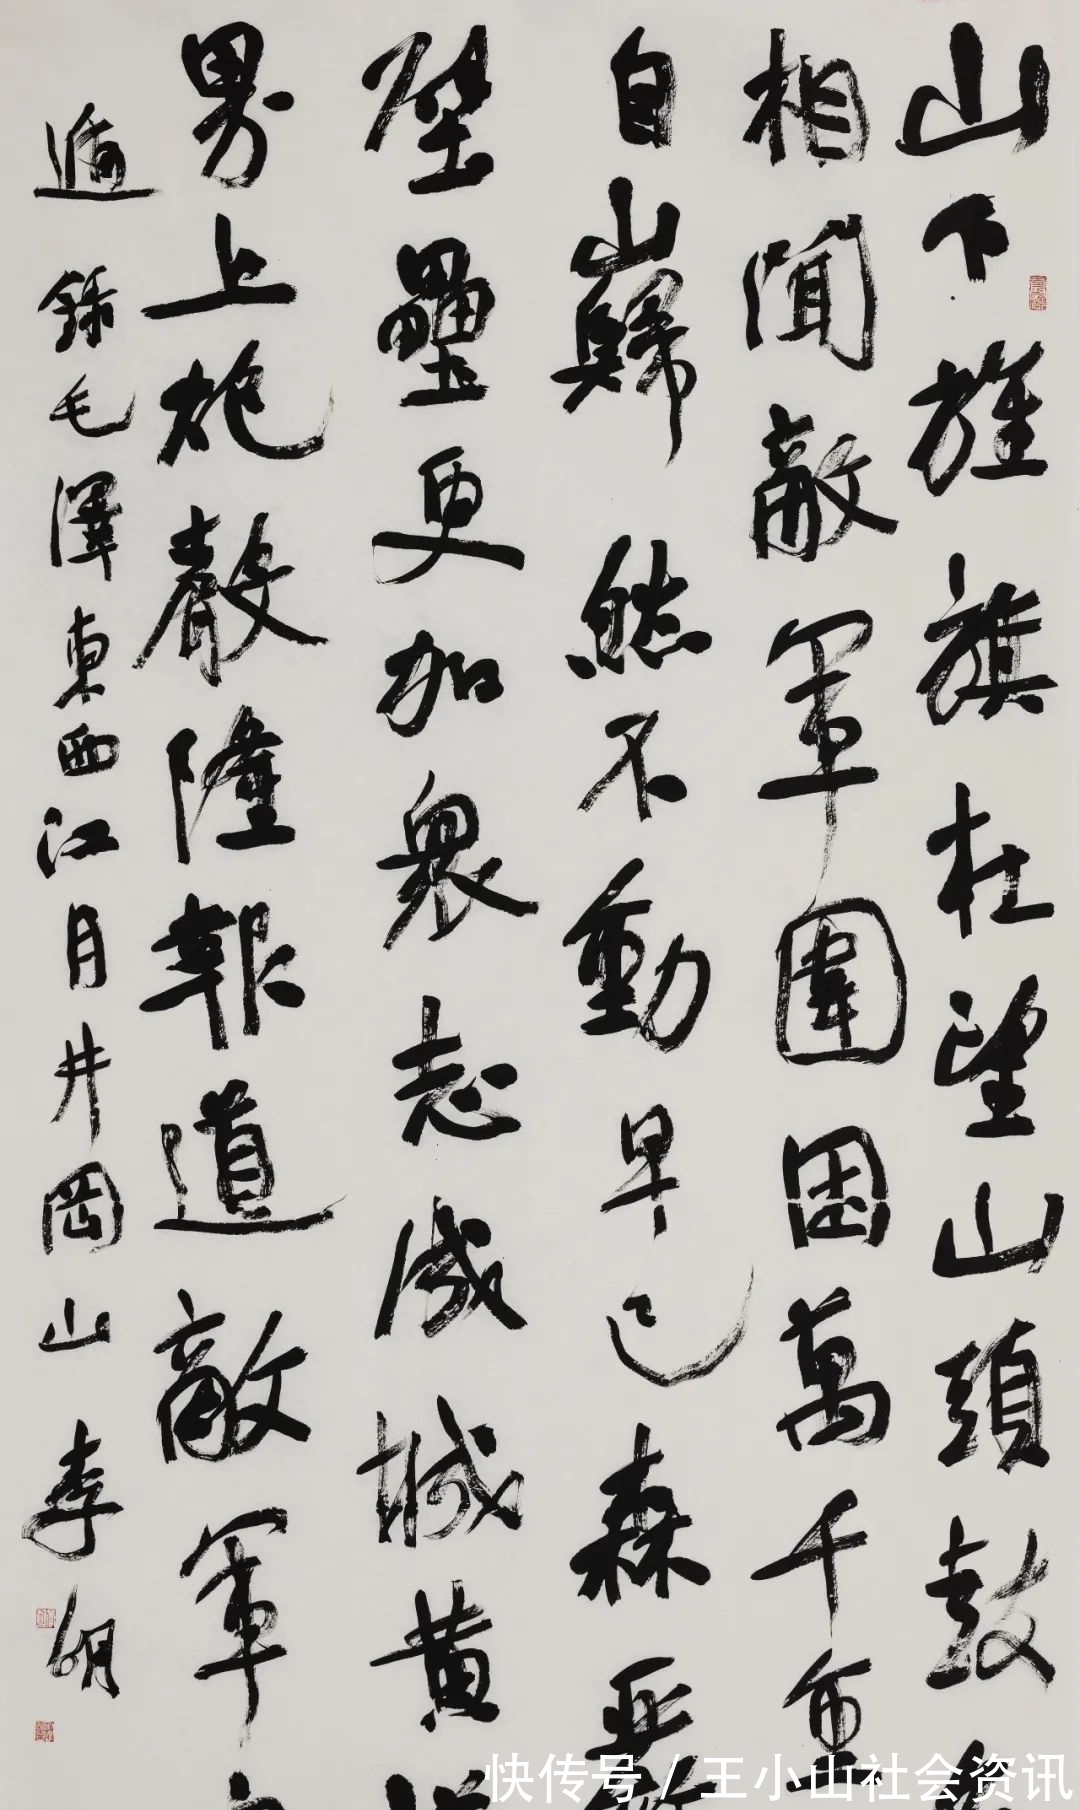 山下旌旗在望山頭鼓
相聞敵軍圍困萬千重
自巋然不動早已森嚴
壁壘更加衆志成城黄
界上炮聲隆報道敵軍
遁 錄毛澤東西江月井岡山 李明
快传号 / 王小山社会资讯